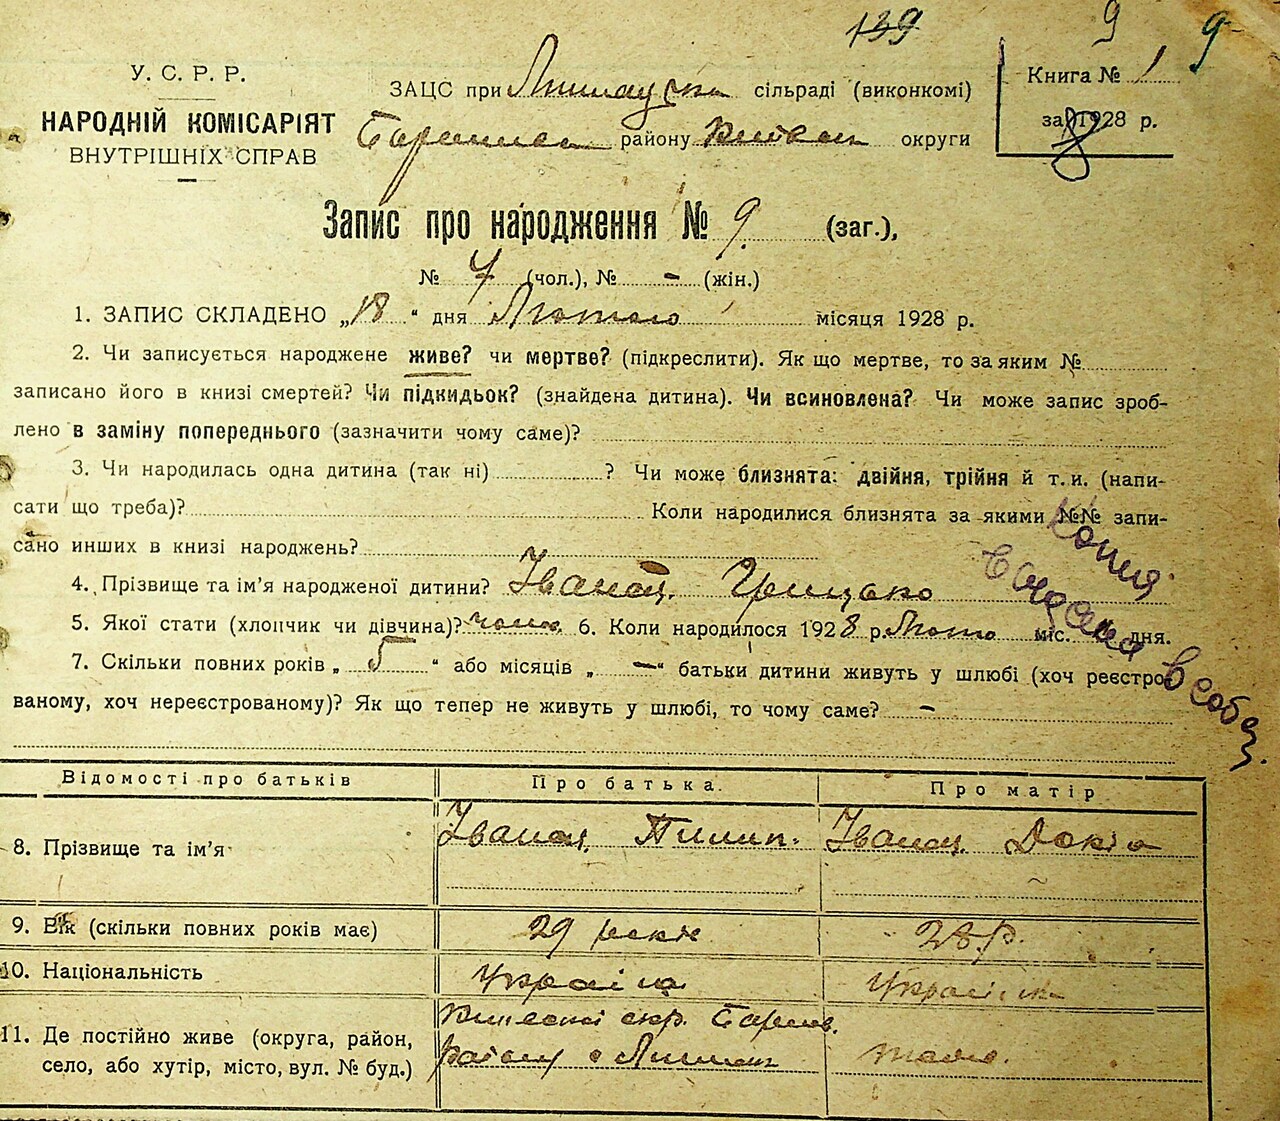 139 9 9
У. С. Р. Р.
НАРОДНІЙ КОМІСАРІЯТ
ВНУТРІШНІХ СПРАВ
ЗАЦС при сільраді (виконкомі)
району округи
Книга № 1
за 1928 р.
8
Запис про народження № 9 (заг.),
№ 7 (чол.), № - (жін.)
1. ЗАПИС СКЛАДЕНО „18“ дня Лютого місяця 1928 р.
2. Чи записується народжене живе? чи мертве? (підкреслити). Як що мертве, то за яким №
записано його в книзі смертей? Чи підкидьок? (знайдена дитина). Чи всиновлена? Чи може запис зроб-
лено в заміну попереднього (зазначити чому саме)?
3. Чи народилась одна дитина (так ні) ? Чи може близнята: двійня, трійня й т. и. (напи-
сати що треба)? Коли народилися близнята за якими №№ запи-
сано инших в книзі народжень?
4. Прізвище та ім’я народженої дитини? Грицько
5. Якої стати (хлопчик чи дівчина)? 6. Коли народилося 1928 р. Люто міс. дня.
7. Скільки повних років „5“ або місяців „—“ батьки дитини живуть у шлюбі (хоч реєстро-
ваному, хоч нереєстрованому)? Як що тепер не живуть у шлюбі, то чому саме? -
Копия
Відомості про батьків Про батька. Про матір
8. Прізвище та ім’я Пилип. Докія
9. Вік (скільки повних років має) 29 років 28 р.
10. Національність Україн. Українка
11. Де постійно живе (округа, район,
село, або хутір, місто, вул. № буд.) району с. тоже.